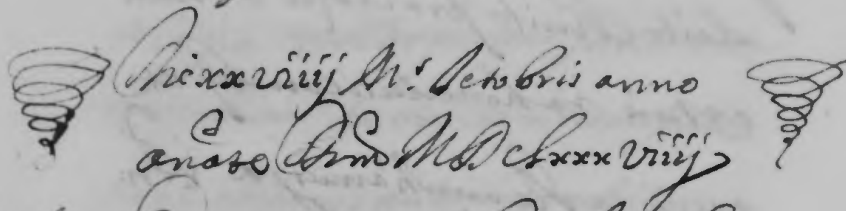 Die xxviiij M.s Octobris anno
anato Dno MDclxxxviiij